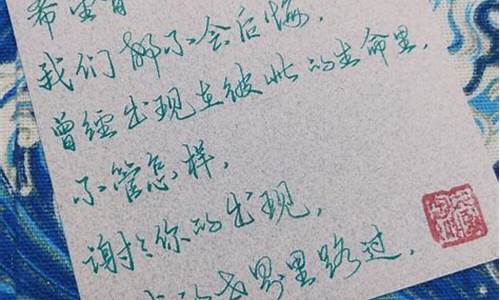 希望
我们都不会后悔,
曾经出现在彼此的生命里,
不管怎样,
谢谢你的出现,
世界里路过.